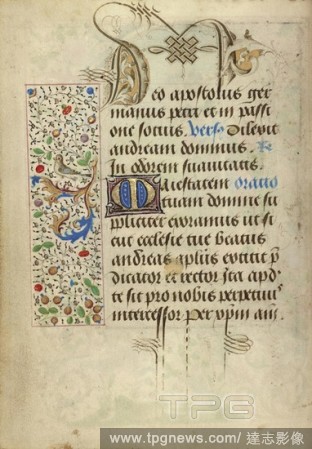 Deo apostolus ger
manus petri et in passi
one socius. Vers Dilexit
andream dominus. R
In odorem suavitatis.
Maiestatem oratio
tuam domine su
pliciter exoramus ut si
cut ecclesie tue beatus
andreas aplus extitit p
dicator et rector sta apd
te sit pro nobis perpetuus
intercessor Per xpm am
TPG
www.tpgnews.com/ 達志影像